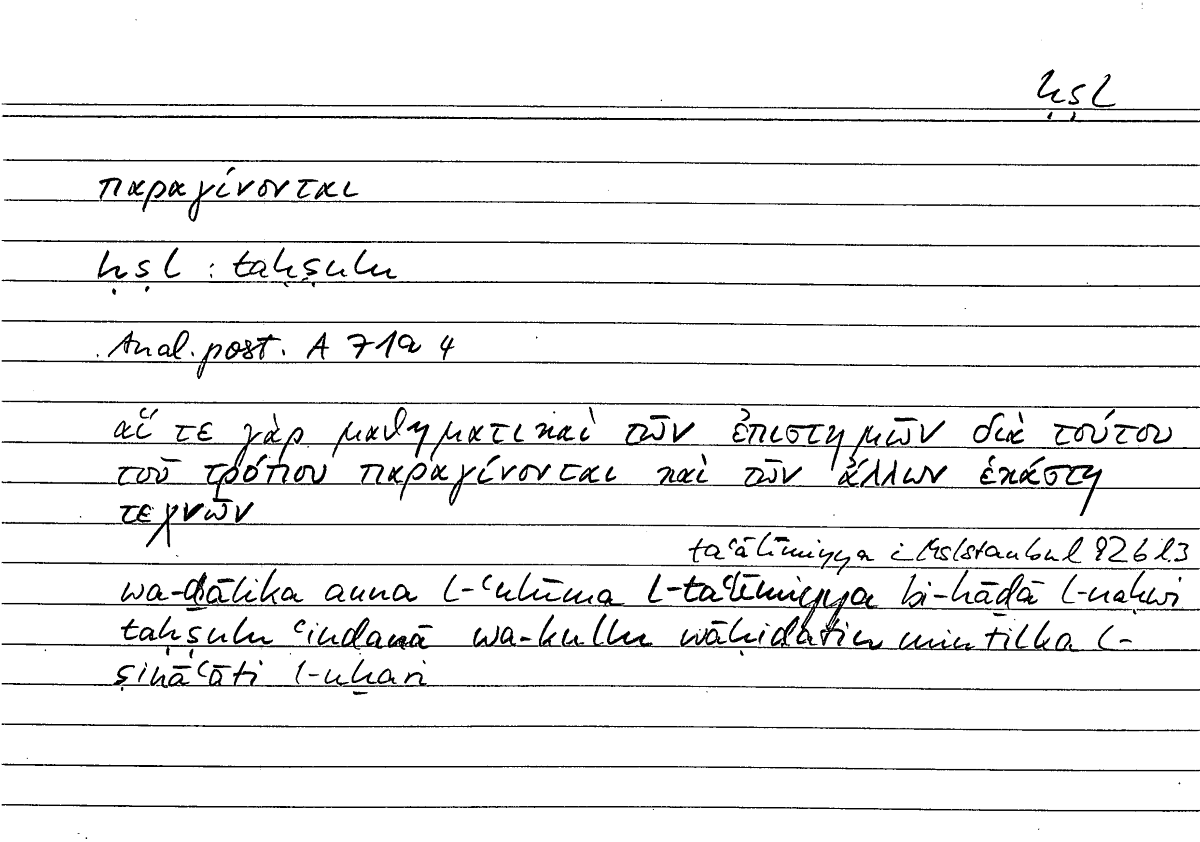 ḥṣl
παραγίνονται
ḥṣl : taḥṣulu
Anal. post. A 71a 4
αἵ τε γὰρ μαθηματικαὶ τῶν ἐπιστημῶν διὰ τούτου
τοῦ τρόπου παραγίνονται καὶ τῶν ἄλλων ἑκάστη
τεχνῶν
taʿālīmiyya i Ms Istanbul 92b l.3
wa-ḏālika anna l-ʿulūma l-taʿlīmiyya bi-hāḏā l-naḥwi
taḥṣulu ʿindanā wa-kullu wāḥidatin min tilka l-
ṣināʿāti l-uḫari